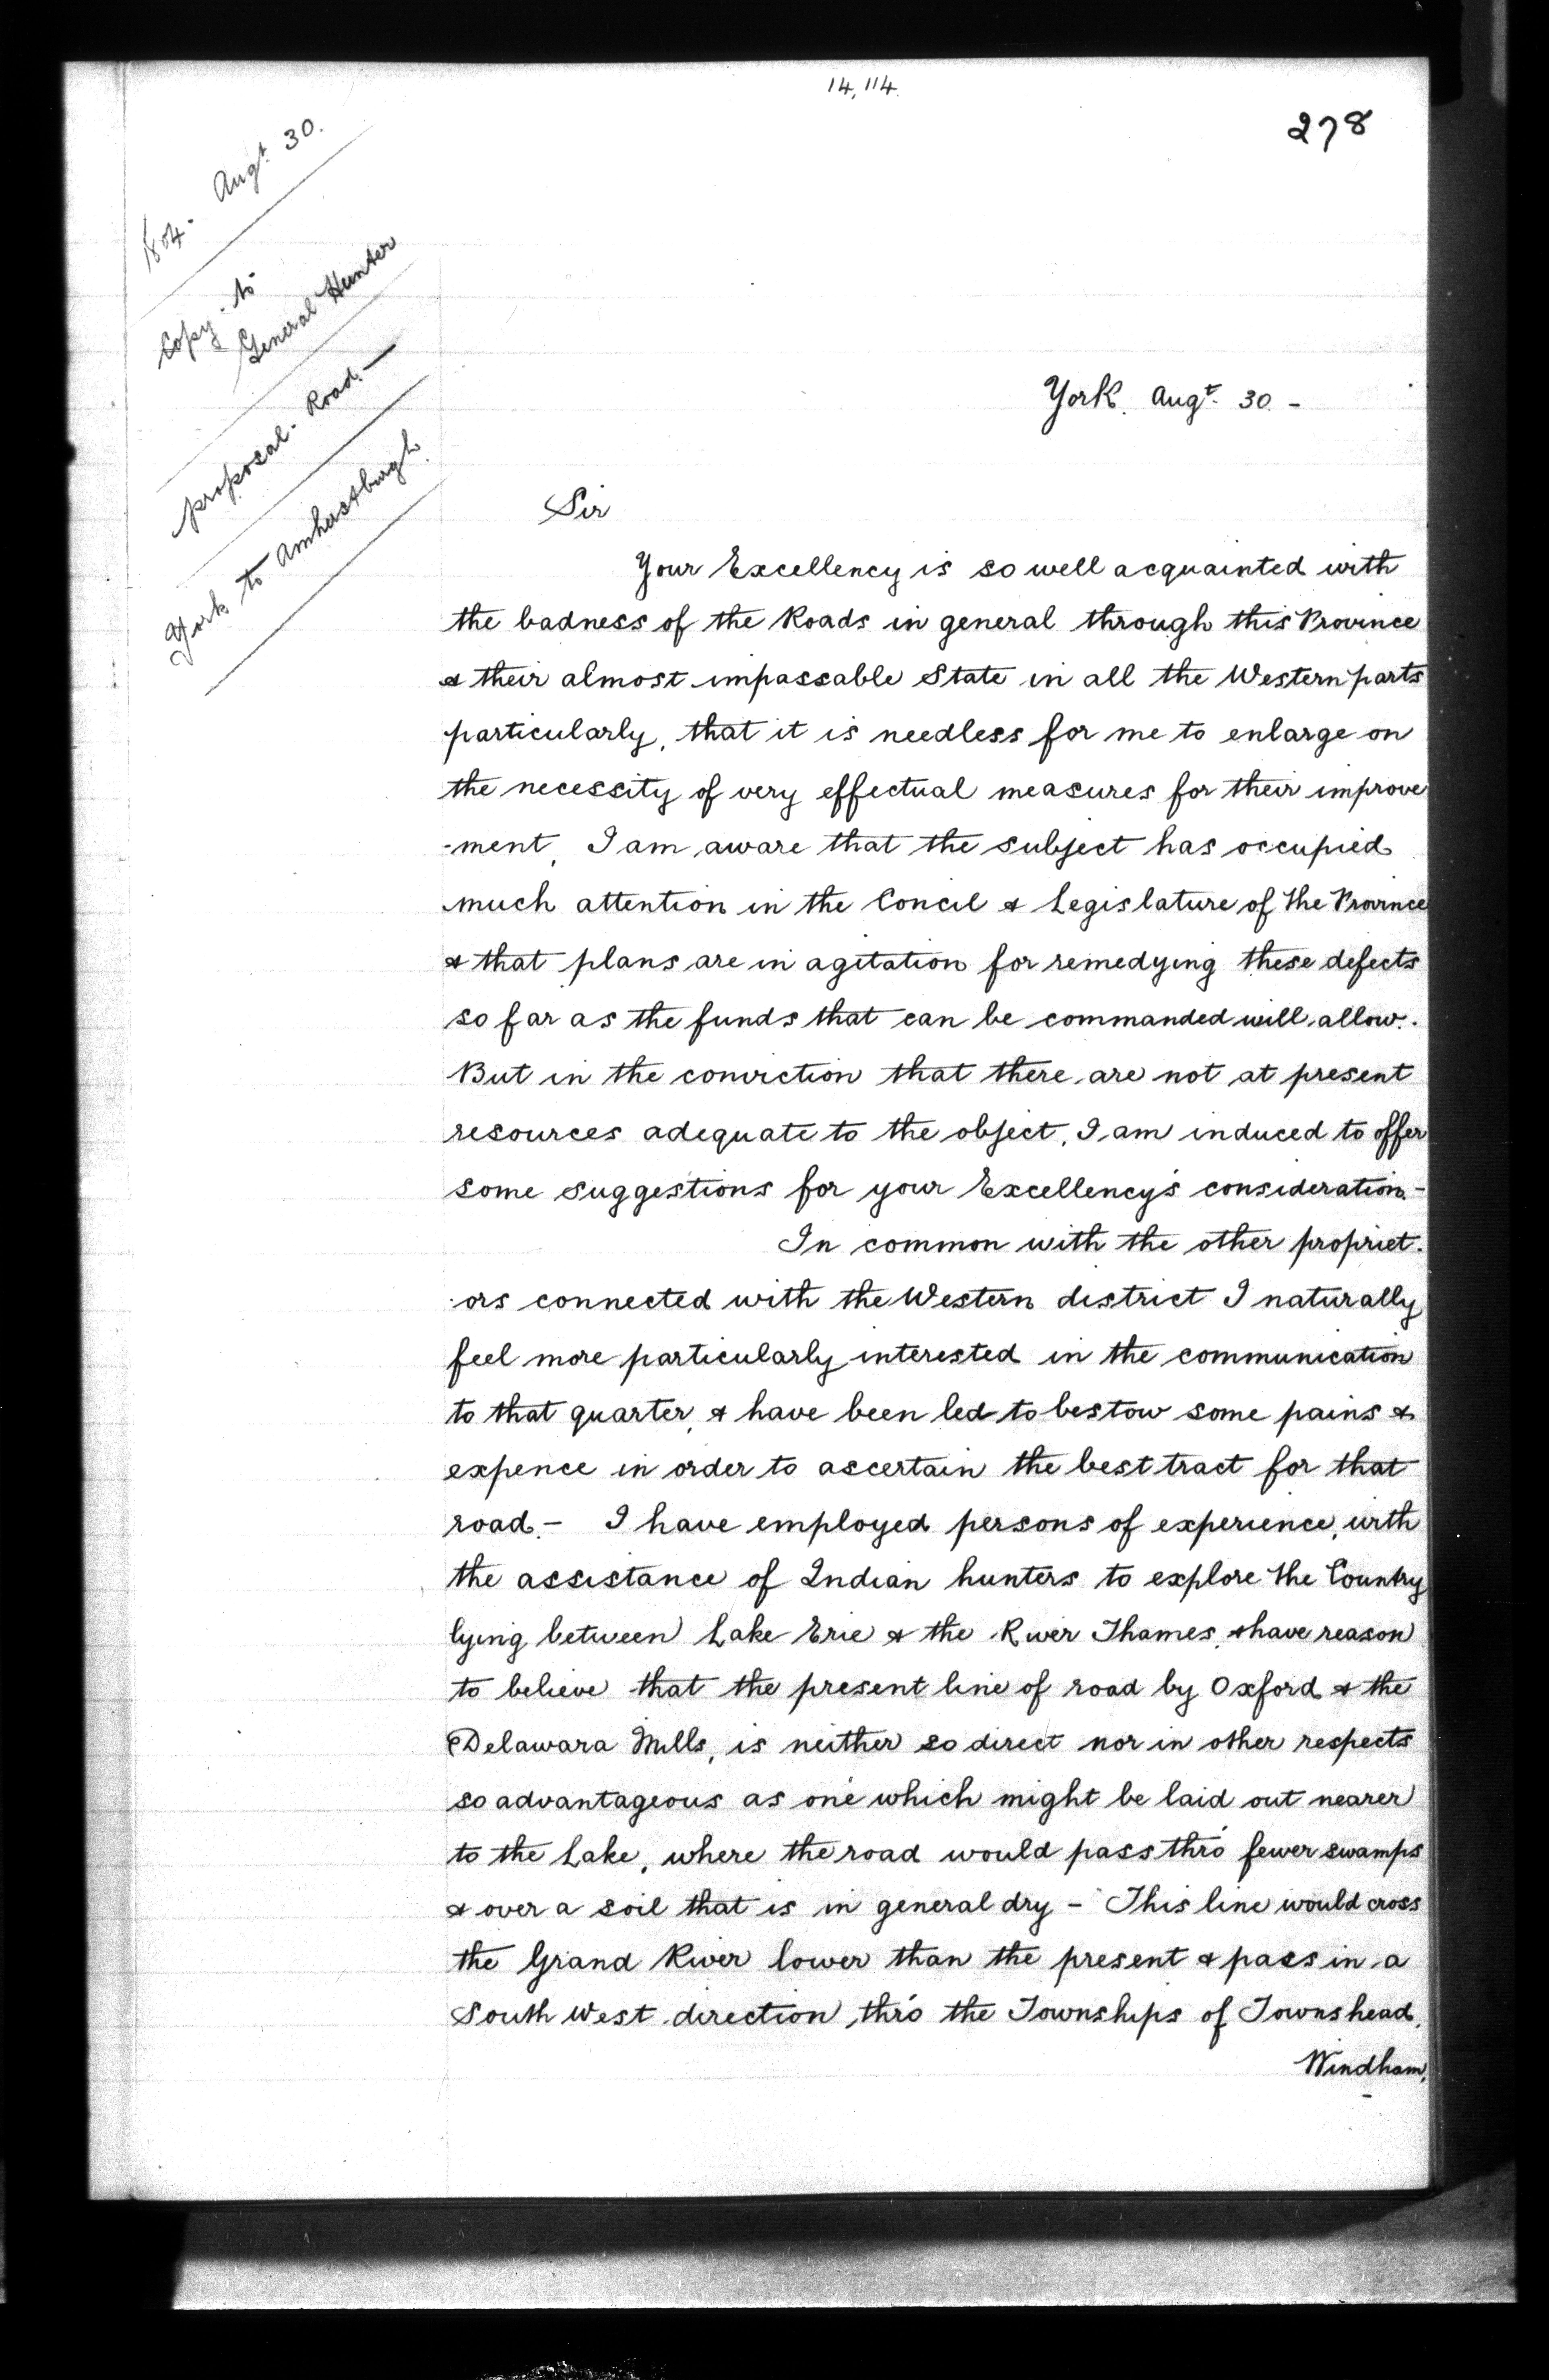 14,114.
278
1804. Augt. 30.
Copy. to
General Hunter
proposal. Road.—
York to Amherstburgh.
York. Augt. 30 -
Sir
Your Excellency is so well acquainted with
the badness of the Roads in general through this Province
& their almost impassable State in all the Western parts
particularly, that it is needless for me to enlarge on
the necessity of very effectual measures for their improve
-ment, I am aware that the subject has occupied
much attention in the Concil & Legislature of the Province
& that plans are in agitation for remedying these defects
so far as the funds that can be commanded will allow.
But in the conviction that there are not at present
resources adequate to the object, I am induced to offer
some suggestions for your Excellency's consideration.-
In common with the other propriet.
ors connected with the Western district I naturally
feel more particularly interested in the communication
to that quarter, & have been led to bestow some pains &
expence in order to ascertain the best tract for that
road.- I have employed persons of experience, with
the assistance of Indian hunters to explore the Country
lying between Lake Erie & the River Thames, & have reason
to believe that the present line of road by Oxford & the
Delawara Mills, is neither so direct nor in other respects
so advantageous as one which might be laid out nearer
to the Lake, where the road would pass thro' fewer swamps
& over a soil that is in general dry - This line would cross
the Grand River lower than the present & pass in a
South West direction, thro' the Townships of Townshead,
Windham,